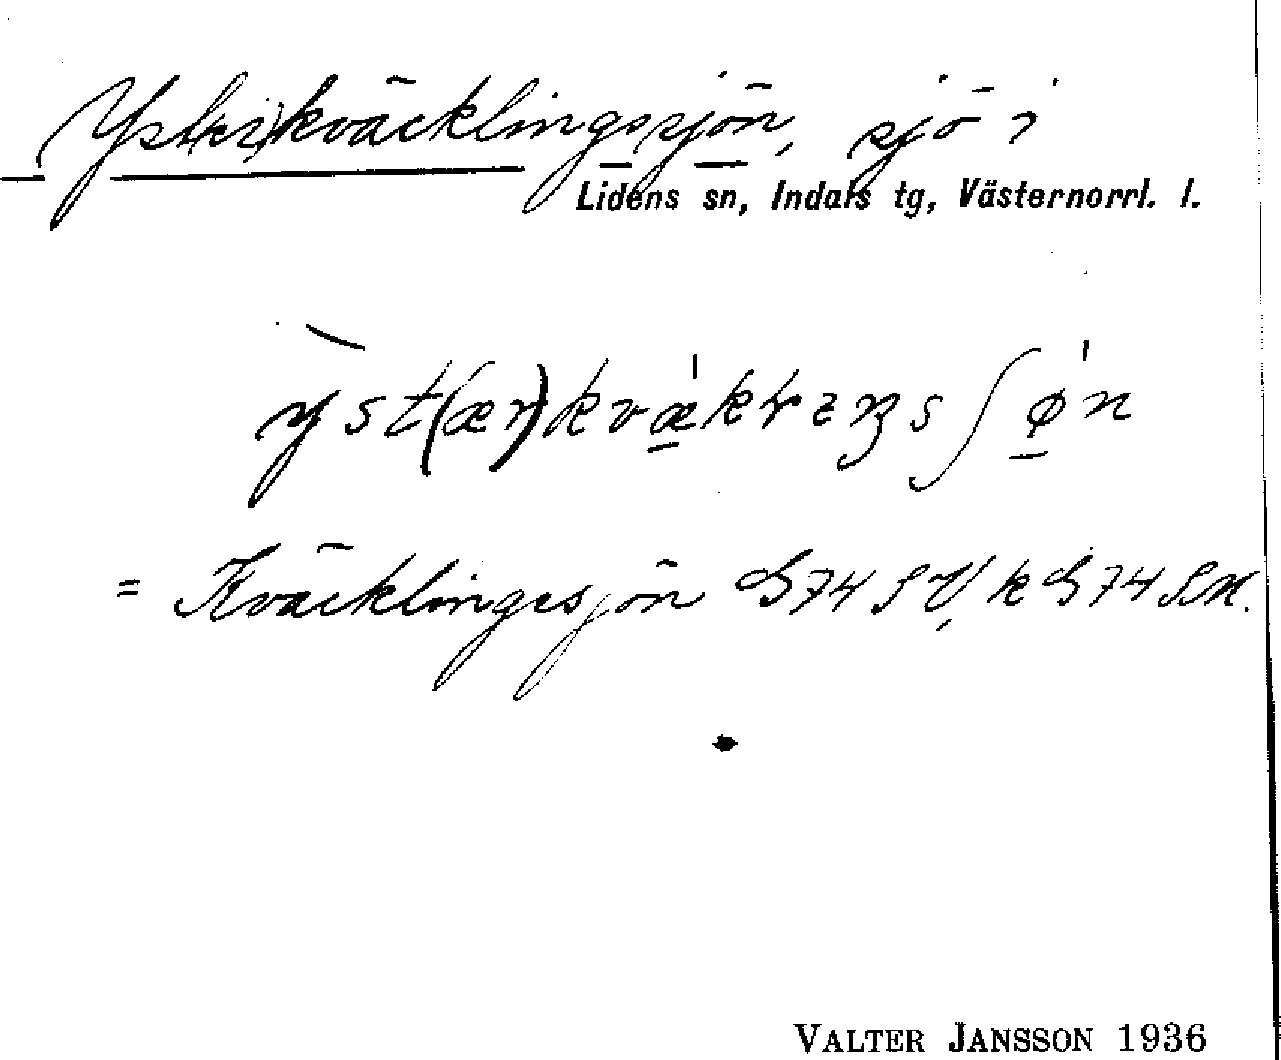 Yst(er)kväcklingssjön, sjö i
Lidens sn, Indals tg, Västernorrl. l.
yst(ær)kvækleŋsʃøn
= Kväcklingssjön S74SV, k S74SM.
VALTER JANSSON 1936